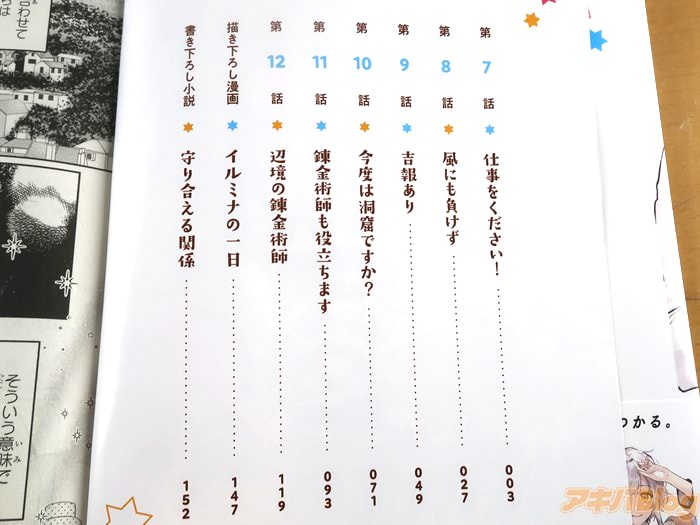 第7話 仕事をください! 003
第8話 風にも負けず 027
第9話 吉報あり 049
第10話 今度は洞窟ですか? 071
第11話 錬金術師も役立ちます 093
第12話 辺境の錬金術師 119
描き下ろし漫画 イルミナの一日 147
書き下ろし小説 守り合える関係 152
わかる。
合わせて
ちは
そういう意味で
いみ
アキバBlog